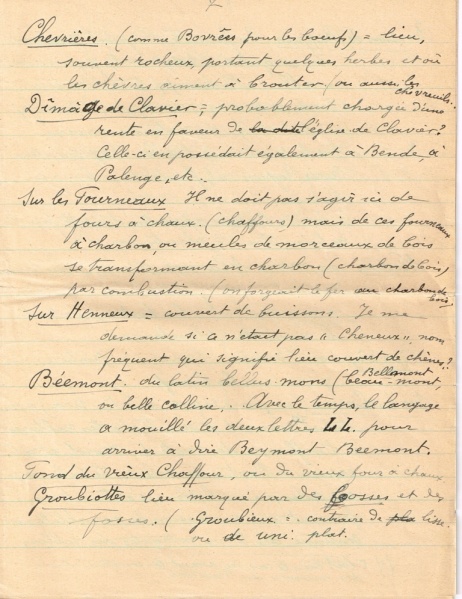 7
Chevrières. (comme Bovrées pour les boeufs) = lieu,
souvent rocheux, portant quelques herbes et où
les chèvres aiment à brouter (ou aussi les
chevreuils..
Dîmage de Clavier = probablement chargée d'une
rente en faveur de la dite l'église de Clavier?
Celle-ci en possédait également à Bende, à
Palenge, etc.
Sur les Fourneaux Il ne doit pas s'agir ici de
fours à chaux. (chaffours) mais de ces fourneaux
à charbon, ou meules de morceaux de bois
se transformant en charbon (charbon de bois)
par combustion. (on forgeait le fer au charbon de
bois.
Sur Henneux = couvert de buissons. Je me
demande si ce n'était pas "Cheneux", nom
fréquent qui signifie lieu couvert de chênes?
Béemont. du latin bellus-mons (beau-mont,
Bellemont
ou belle colline. Avec le temps, le langage
a mouillé les deux lettres LL. pour
arriver à dire Beymont Beemont.
Fond du vieux Chaffour, ou du vieux four à chaux
Groubiottes lieu marqué par des bosses et des
fosses. ( Groubieux = contraire de pla lisse
ou de uni. plat.